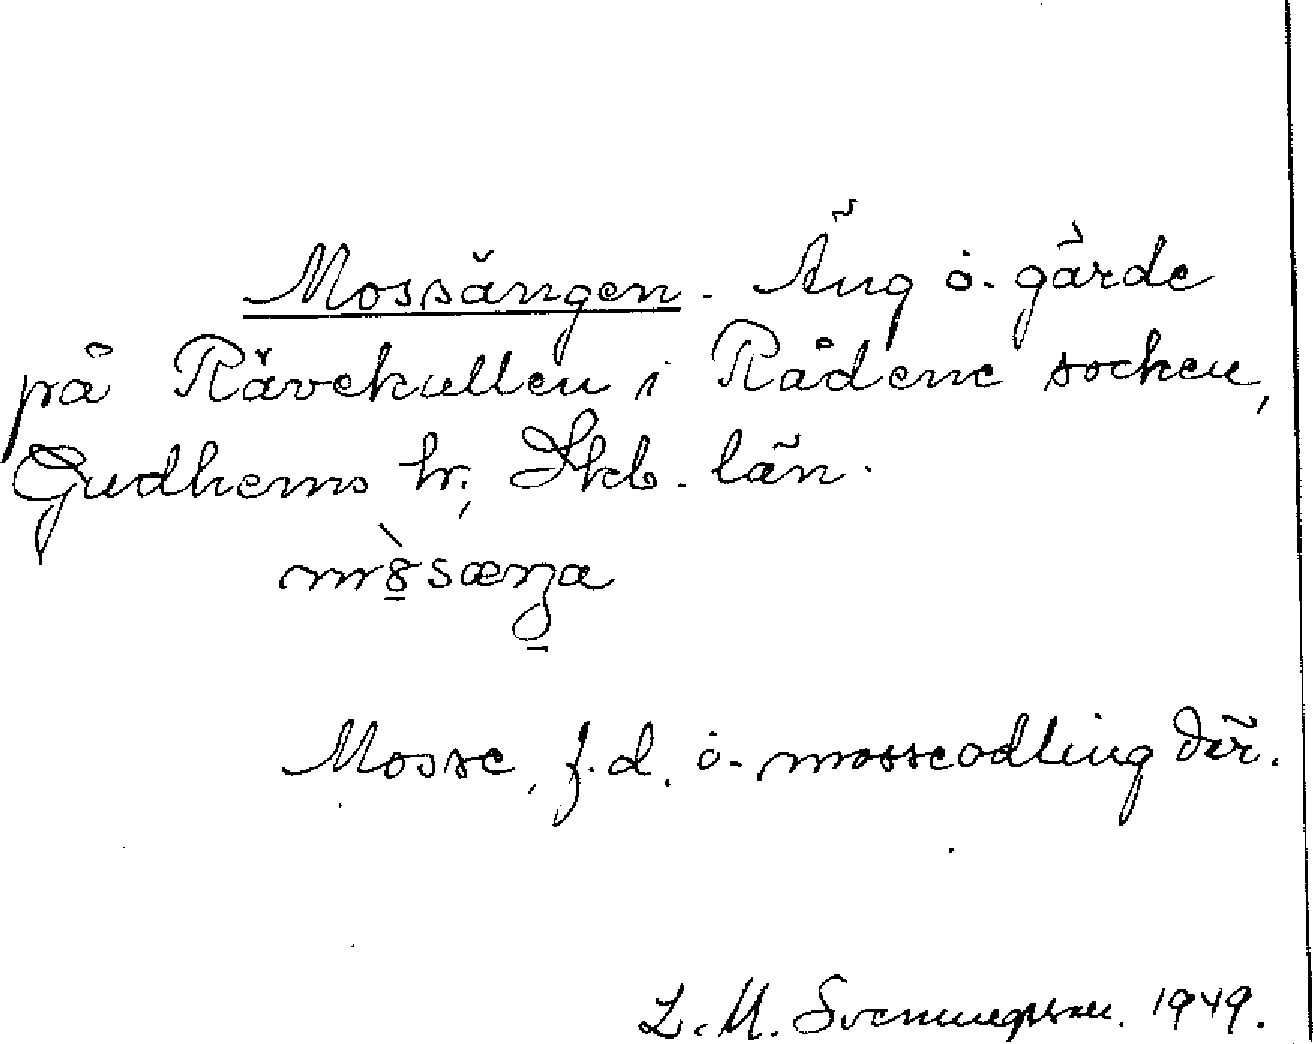 Mossängen. Äng o. gärde
på Rävekullen i Rådene socken,
Gudhems hr, Skb. län.
mò̠sæŋa
Mosse, f.d. o. mosseodling där.
L. M. Svenungsson. 1949.